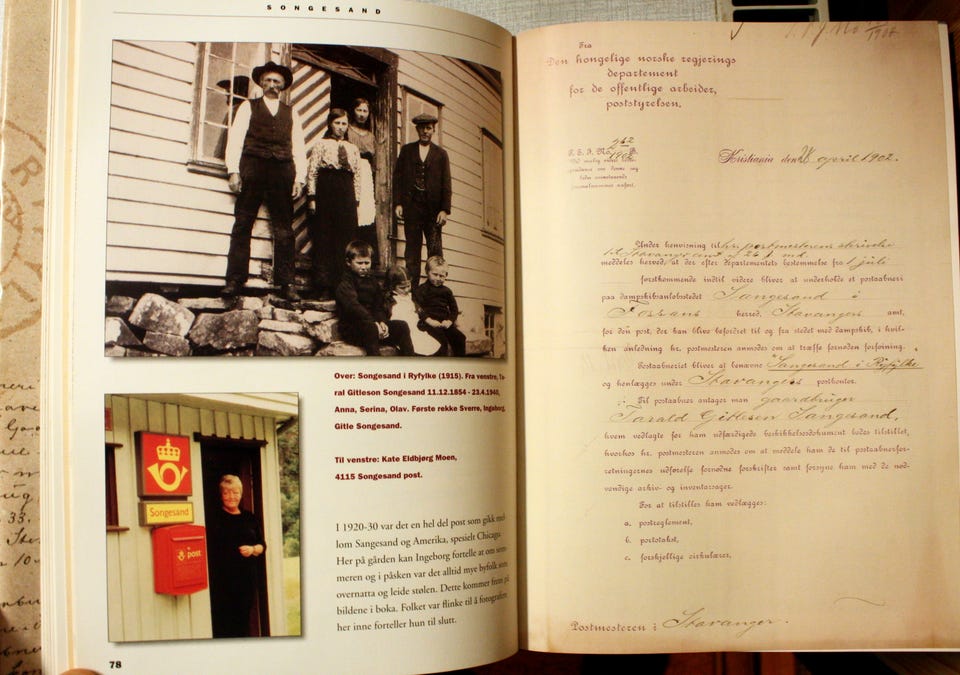 SONGESAND
Over: Songesand i Ryfylke (1915). Fra venstre, To-
ral Gitleson Songesand 11.12.1854 - 23.4.1940,
Anna, Serina, Olav. Første rekke Sverre, Ingeborg,
Gitle Songesand.
Til venstre: Kate Eldbjørg Moen,
4115 Songesand post.
Songesand
post
I 1920-30 var det en hel del post som gikk mel-
lom Sangesand og Amerika, spesielt Chicago.
Her på gården kan Ingeborg fortelle at om som-
meren og i påsken var det alltid mye byfolk som
overnatta og leide stølen. Dette kommer frem på
bildene i boka. Folket var flinke til å fotografere
her inne forteller hun til slutt.
78
Fra
Den kongelige norske regjerings
departement
for de offentlige arbeider,
poststyrelsen.
Kristiania den 28 april 1902.
Under henvisning til hr. postmesterens skrivelse
meddeles herved, at der efter departementets bestemmelse fra 1 juli
førstkommende indtil videre bliver at underholde et postaabneri
paa dampskibsanløbsstedet Sangesand i
Fossans herred, Stavangers amt,
for den post, der kan blive befordret til og fra stedet med dampskib, i hvil-
ken anledning hr. postmesteren anmodes om at træffe fornøden forføining.
Postaabneriet bliver at benævne "Sangesand i Ryfylke"
og henlægges under Stavangers postkontor.
Til postaabner antages man gaardbruger
Tarald Gitlesen Sangesand,
hvem vedlagte for ham udfærdigede beskikkelsesdokument bedes tilstillet,
hvorhos hr. postmesteren anmodes om at meddele ham de til postaabnerfor-
retningernes udførelse fornødne forskrifter samt forsyne ham med de nød-
vendige arkiv- og inventarsager.
For at tilstilles ham vedlægges:
a. postreglement,
b. portotakst,
c. forskjellige cirkulærer,
Postmesteren i Stavanger.